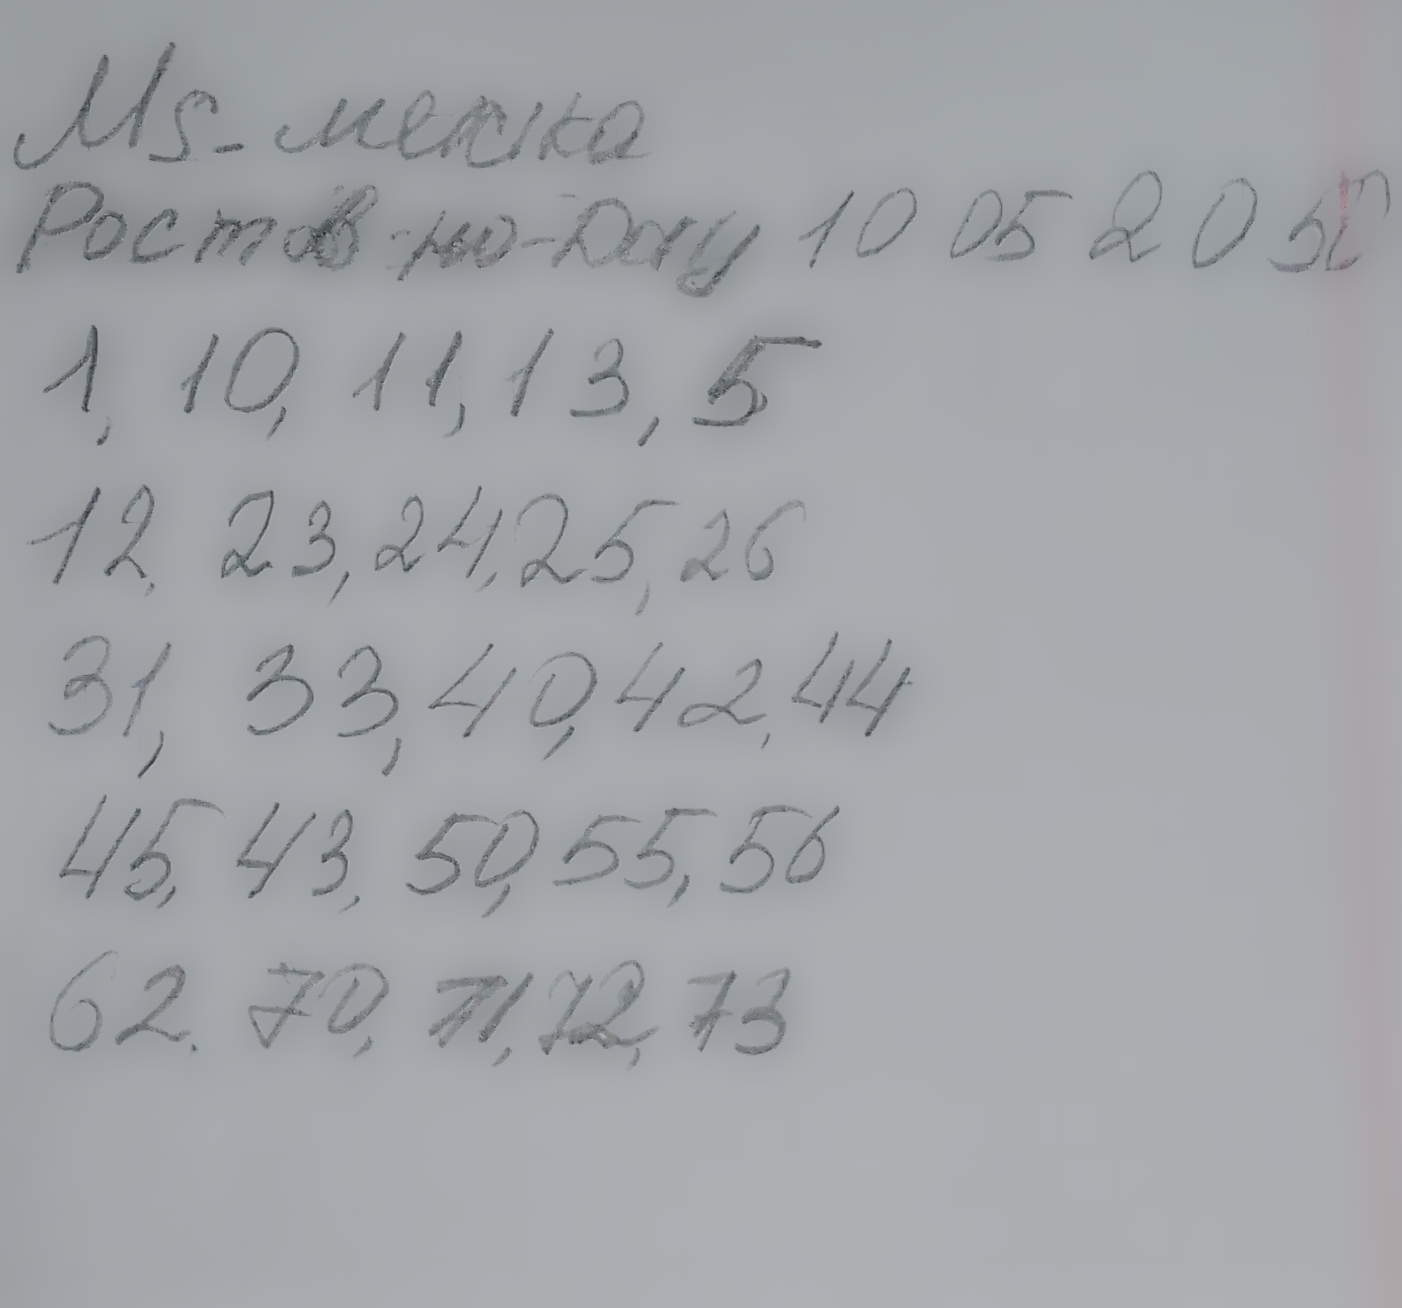 Ms-метка
Ростов-на-Дону 10 05 20 50
1, 10, 11, 13, 5
12. 23, 24, 25, 26
31, 33, 40, 42, 44
45, 43, 50, 55, 56
62. 70, 71, 72, 73